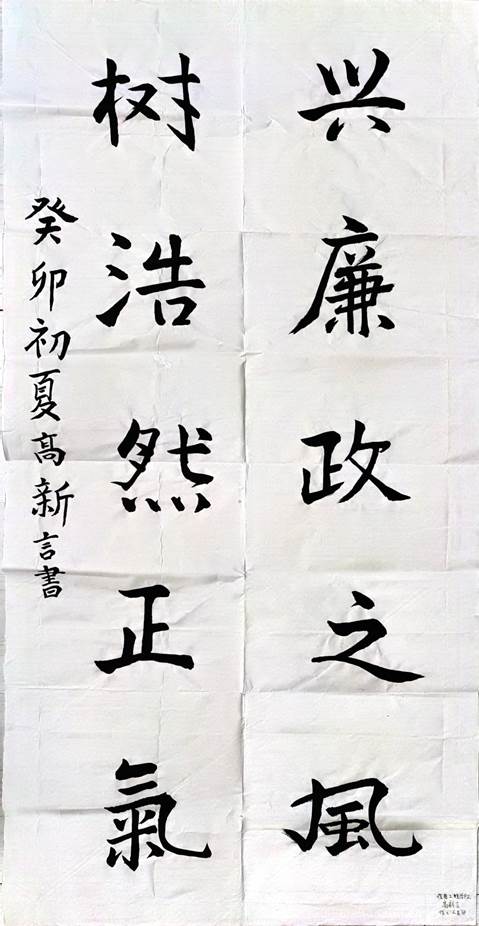 兴廉政之風
树浩然正氣
癸卯初夏高新言書